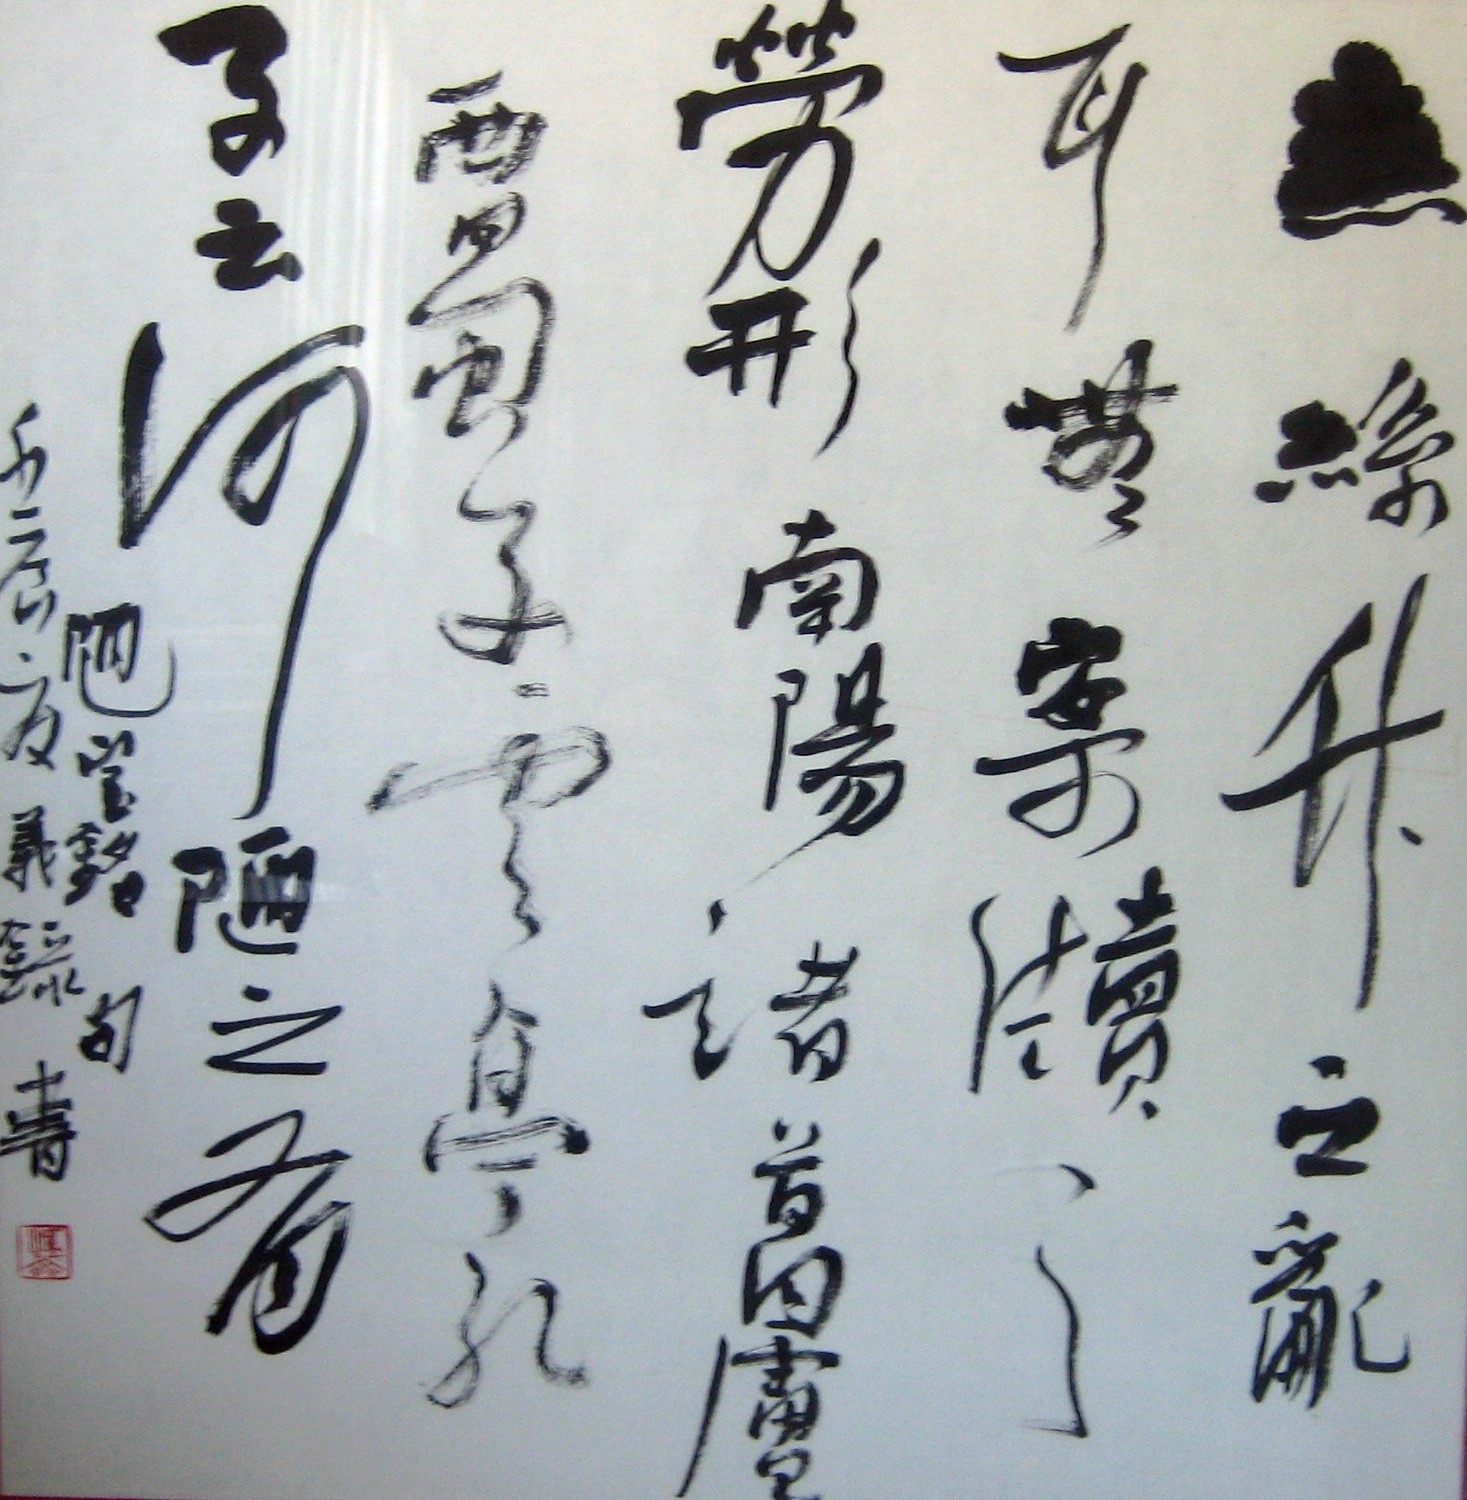 無絲竹之亂
耳無案牘之
勞形南陽諸葛廬
西蜀子雲亭孔
子云何陋之有
陋室銘句
壬辰夏義